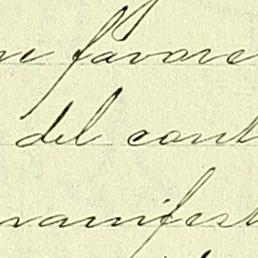 ne favore
del cont
manifest